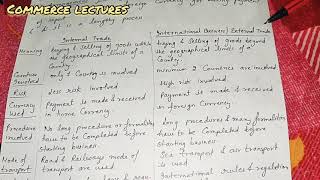 COMMERCE LECTURES
of input
& it is a lengthy process
Internal Trade
International Business / External Trade
Meaning
buying & selling of goods within the geographical limits of a Country.
buying & selling of goods beyond the geographical limits of a Country.
Countries Involved
only 1 Country is involved
minimum 2 Countries are involved
Risk
less Risk involved
High risk involved.
Currency used
Payment is made & received in home Currency
Payment is made & received in foreign Currency.
Procedure involved
No long procedure or formalities have to be Completed before starting business
Long procedures & many formalities have to be Completed before starting business
Mode of transport
Road & Railways mode of transport are used.
Sea transport & air transport is used
International rules & regulation